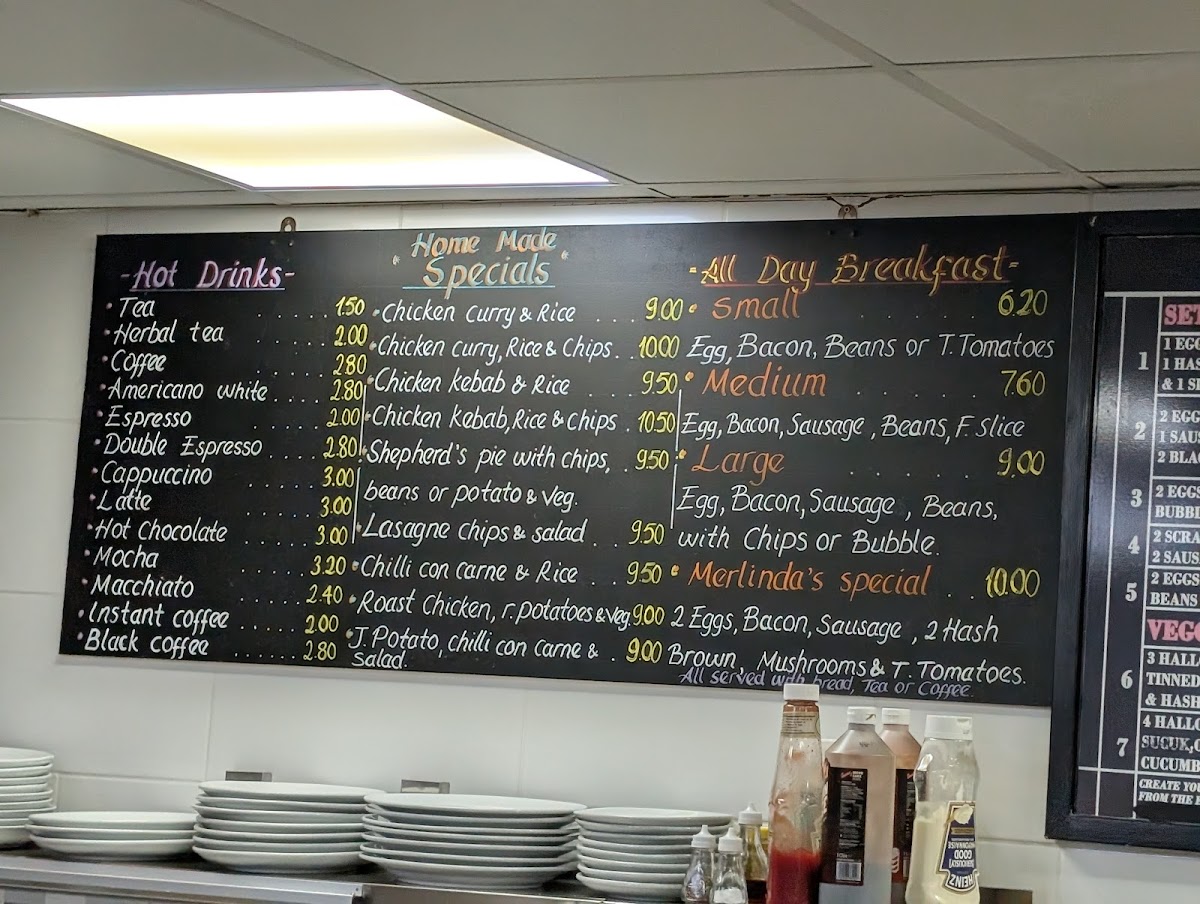 -Hot Drinks-
• Tea ..... 1.50
• Herbal tea ..... 2.00
• Coffee ..... 2.80
• Americano white .... 2.80
• Espresso ..... 2.00
• Double Espresso .... 2.80
• Cappuccino ..... 3.00
• Latte ..... 3.00
• Hot Chocolate ..... 3.00
• Mocha ..... 3.20
• Macchiato ..... 2.40
• Instant coffee ..... 2.00
• Black coffee ...... 2.80
"Home Made
Specials"
• Chicken curry & Rice .... 9.00
• Chicken curry, Rice & Chips .. 10.00
• Chicken kebab & Rice ... 9.50
• Chicken kebab, Rice & Chips . 10.50
• Shepherd's pie with chips, .. 9.50
beans or potato & veg.
• Lasagne chips & salad ... 9.50
• Chilli con carne & Rice ... 9.50
• Roast Chicken, r. potatoes & veg 9.00
• J. Potato, chilli con carne & . 9.00
salad.
-All Day Breakfast-
• Small ..... 6.20
Egg, Bacon, Beans or T. Tomatoes
• Medium .... 7.60
Egg, Bacon, Sausage, Beans, F. slice
• Large .... 9.00
Egg, Bacon, Sausage, Beans,
with Chips or Bubble.
• Merlinda's special .. 10.00
2 Eggs, Bacon, Sausage, 2 Hash
Brown, Mushrooms & T. Tomatoes.
All served with bread, Tea or Coffee.
SET
1
1 EGG
1 HAS
& 1 S
2
2 EGG
1 SAUS
2 BLA
3
2 EGGS
BUBBL
4
2 SCRA
2 SAUS
5
2 EGGS
BEANS
VEGG
6
3 HALL
TINNED
& HASH
7
4 HALLO
SUCUK, C
CUCUMB
CREATE YOU
FROM THE
SERIOUSLY
GOOD
HEINZ